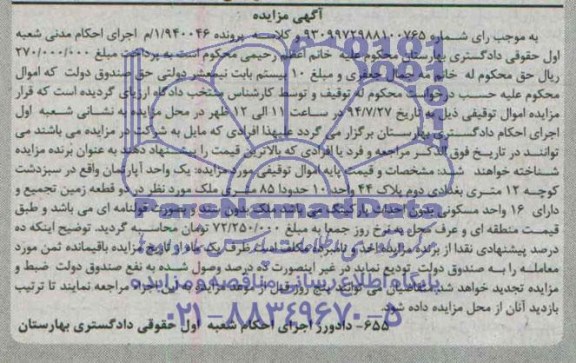 آگهی مزایده
به موجب رای شماره ۹۳۰۹۹۷۲۹۸۸۱۰۰۷۶۵ و کلاسه پرونده ۹۴۰۰۴۶/۱/م اجرای احکام مدنی شعبه
اول حقوقی دادگستری بهارستان محکوم علیه خانم اعظم رحیمی محکوم است به پرداخت مبلغ ۲۷۰/۰۰۰/۰۰۰
ریال حق محکوم له خانم جعفری و مبلغ ۱۰ بیستم بابت نیمعشر دولتی حق صندوق دولت که اموال
محکوم علیه حسب درخواست محکوم له توقیف و توسط کارشناس منتخب دادگاه ارزیابی گردیده است که قرار
مزایده اموال توقیفی ذیل به تاریخ ۹۴/۷/۲۷ در ساعت ۱۱ الی ۱۲ ظهر در محل مزایده به نشانی شعبه اول
اجرای احکام دادگستری بهارستان برگزار می گردد علیهذا افرادی که مایل به شرکت در مزایده می باشند می
توانند در تاریخ فوق الذکر مراجعه و فرد یا افرادی که بالاترین قیمت را پیشنهاد دهند به عنوان برنده مزایده
شناخته خواهند شد: مشخصات و قیمت پایه اموال توقیفی مورد مزایده: یک واحد آپارتمان واقع در سبزدشت
کوچه ۱۲ متری بغدادی دوم پلاک ۴۴ واحد ۱۰ حدودا ۸۵ متری ملک مورد نظر در دو قطعه زمین تجمیع و
دارای ۱۶ واحد مسکونی بدون احداث پارکینگ می باشد ملک بدون سند و بصورت قولنامه ای می باشد و طبق
قیمت منطقه ای و عرف محل به نرخ روز جمعا به مبلغ ۷۲/۲۵۰/۰۰۰ تومان محاسبه گردید. توضیح اینکه ده
درصد پیشنهادی نقدا از برنده مزایده اخذ و نامبرده مکلف است ظرف یک ماه از تاریخ مزایده باقیمانده ثمن مورد
معامله را به صندوق دولت تودیع نماید در غیر اینصورت ده درصد وصول شده به نفع صندوق دولت ضبط و
مزایده تجدید خواهد شد متقاضیان می توانند پنج روز قبل از موعد مزایده به این اجراء مراجعه نمایند تا ترتیب
بازدید آنان از محل مزایده داده شود.
۶۵۵- دادورز اجرای احکام شعبه اول حقوقی دادگستری بهارستان
ParsNamadData
پایگاه اطلاع رسانی مناقصه و مزایده
۰۲۱-۸۸۳۴۹۶۷۰-۵